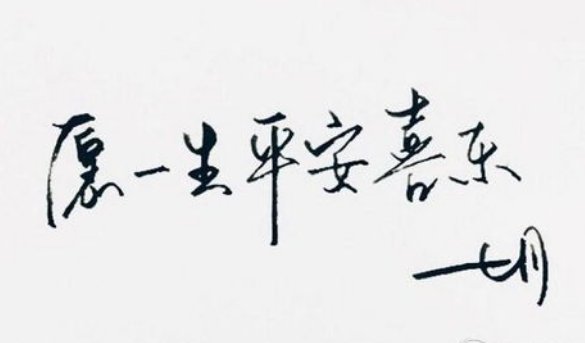 愿一生平安喜乐
一七月